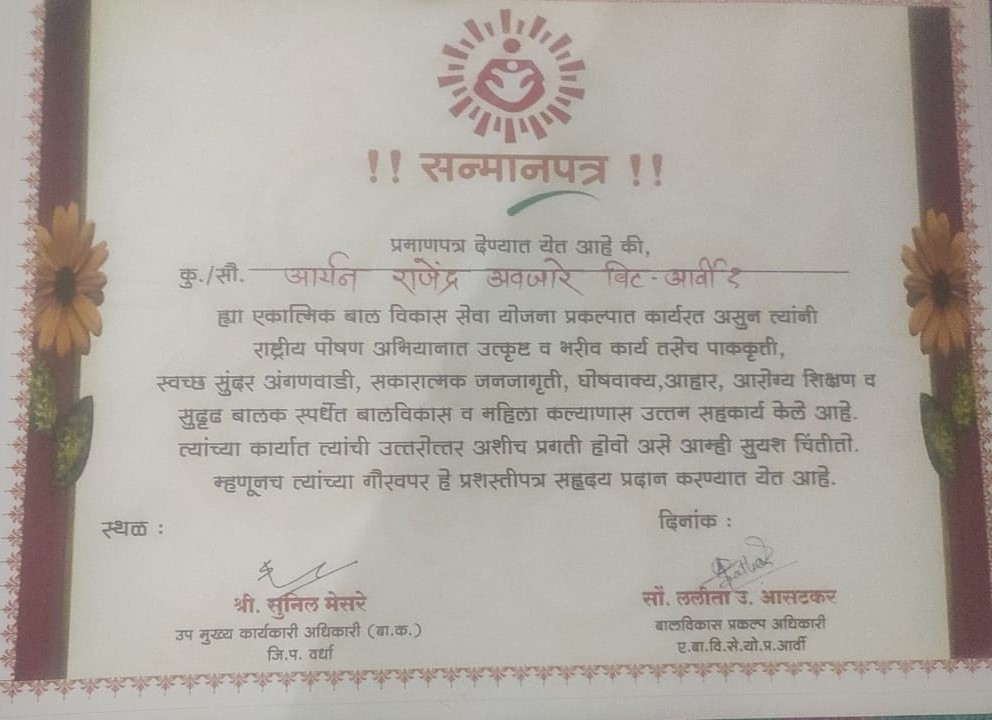 !! सन्मानपत्र !!
प्रमाणपत्र देण्यात येत आहे की,
कु./सौ. आर्यन राजेंद्र अवजारे बिट-आर्वी १
ह्या एकात्मिक बाल विकास सेवा योजना प्रकल्पात कार्यरत असुन त्यांनी
राष्ट्रीय पोषण अभियानात उत्कृष्ट व भरीव कार्य तसेच पाककृती,
स्वच्छ सुंदर अंगणवाडी, सकारात्मक जनजागृती, घोषवाक्य,आहार, आरोग्य शिक्षण व
सुदृढ बालक स्पर्धेत बालविकास व महिला कल्याणास उत्तम सहकार्य केले आहे.
त्यांच्या कार्यात त्यांची उत्तरोत्तर अशीच प्रगती होवो असे आम्ही सुयश चिंतीतो.
म्हणूनच त्यांच्या गौरवपर हे प्रशस्तीपत्र सहृदय प्रदान करण्यात येत आहे.
स्थळ :
दिनांक :
श्री. सुनिल मेसरे
उप मुख्य कार्यकारी अधिकारी (बा.क.)
जि.प. वर्धा
सौ. ललीता उ. आंसटकर
बालविकास प्रकल्प अधिकारी
ए.बा.वि.से.यो.प्र.आर्वी